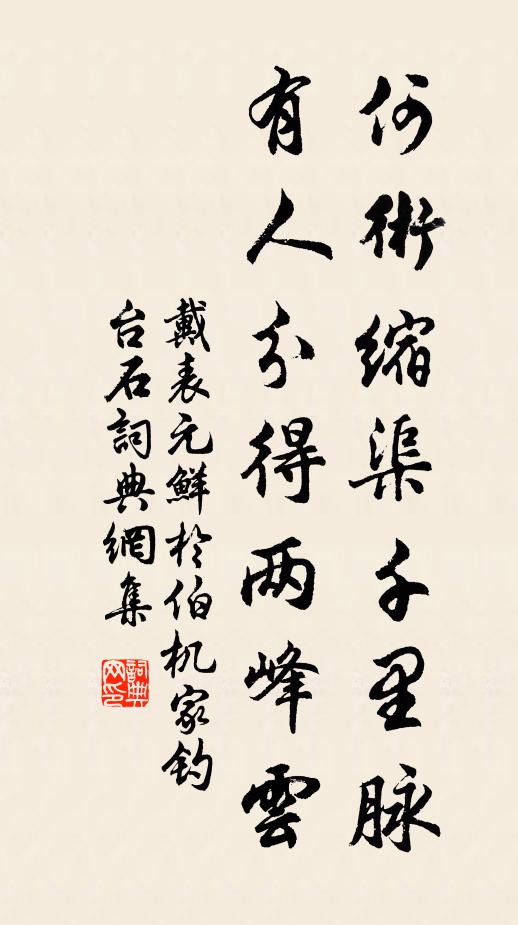 何術縮渠千里脉
有人分得両峰雲
戴表元鮮於伯机家钓
台石詞典網集
詞典网印